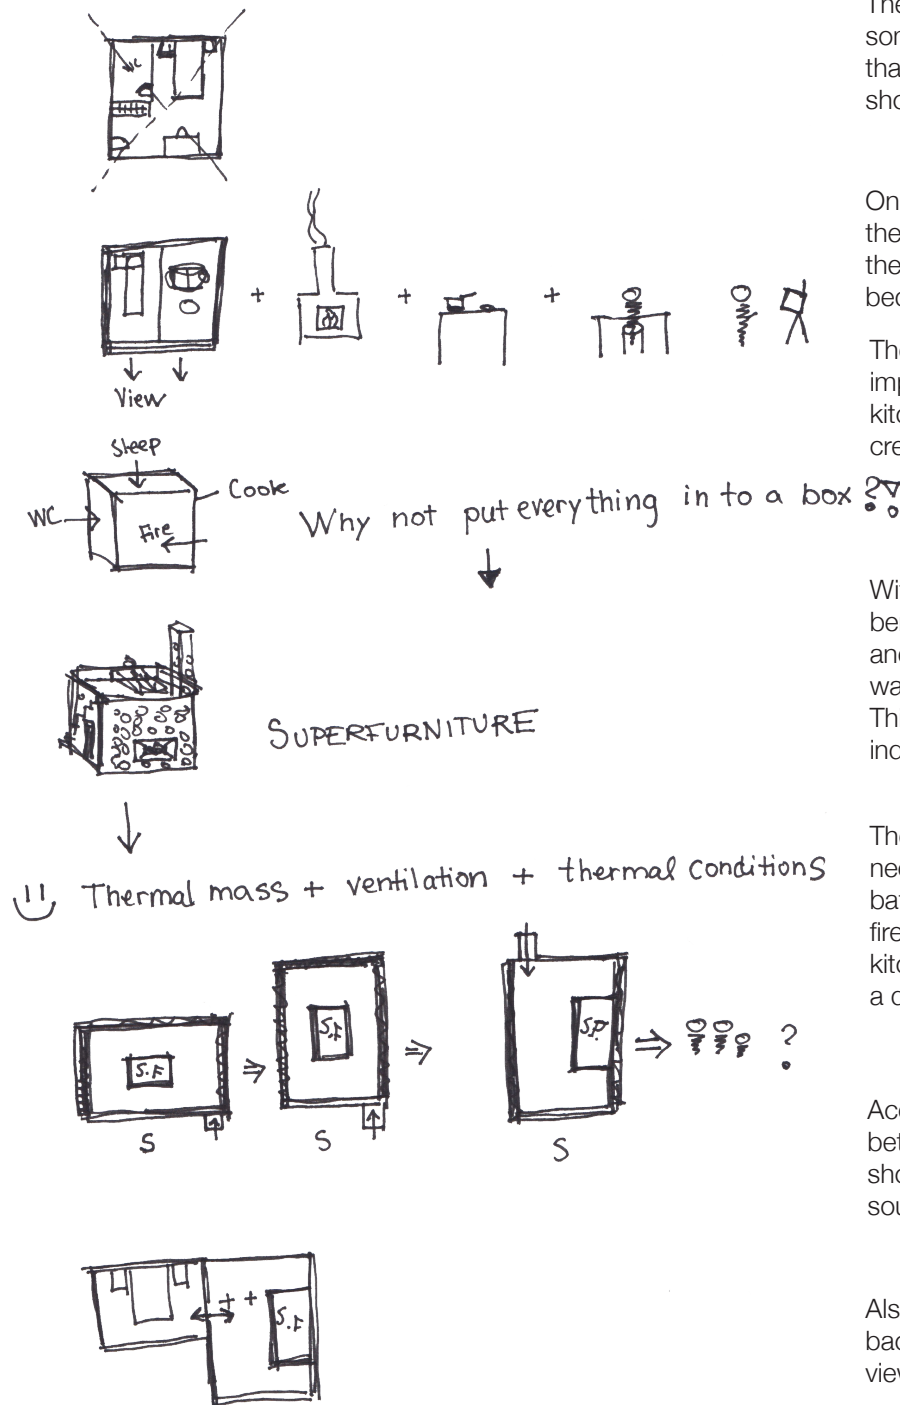 View
Sleep
WC
Cook
Fire
Why not put everything in to a box ?
SUPERFURNITURE
Thermal mass + ventilation + thermal conditions
S.F
S
S.F
S
S.F.
S
?
S.F
sho
On
the
the
bec
The
imp
kito
cre
Wit
ber
and
wa
Thi
ind
The
nee
bat
fire
kito
a c
Acc
bet
sho
sou
Als
bac
view